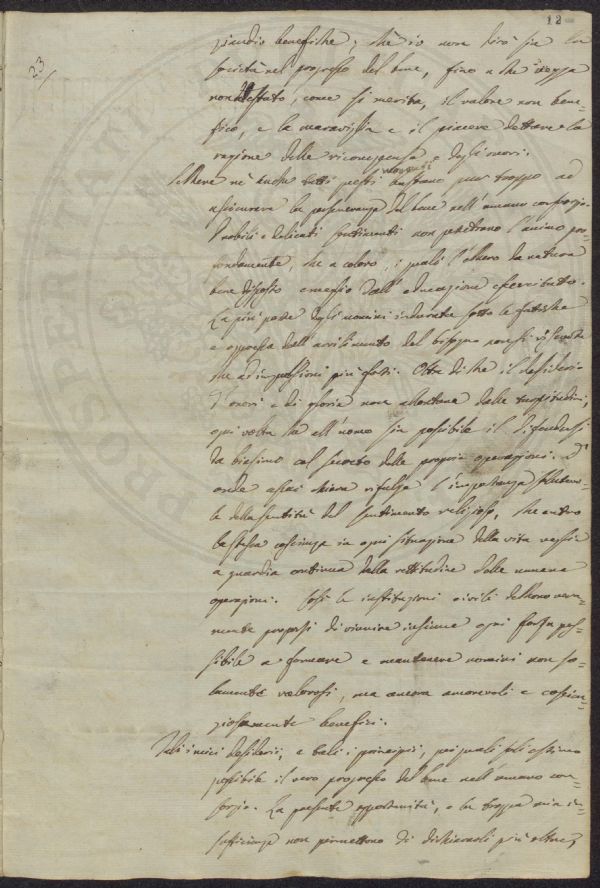 12
23
ziandio benefiche; chè io non dirò sia la
società nel progresso del bene, fino a che
non detestato, come si merita, il valore non bene-
fico, e la maraviglia e il piacere dettare la
ragione delle ricompense e degli onori.
Sebbene nè anche tutti questi bastano pur troppo ad
assicurare la perseveranza del bene nell'umano consorzio.
I nobili e delicati sentimenti non penetrano l'animo pro-
fondamente, che a coloro, i quali l'ebbero da natura
bene disposto e meglio dall'educazione esercitato.
La più parte degli uomini indurata sotto le fatiche
e oppressa dall'avvilimento del bisogno non si risente
che ad impressioni più forti. Oltre di che il desiderio
d'onori e di gloria non allontana dalle turpitudini,
ogni volta che all'uomo sia possibile il difendersi
da biasimo col secreto delle proprie operazioni. D'
onde assai chiara rifulge l'importanza solenne
della santità del sentimento religioso, che entro
la stessa coscienza in ogni situazione della vita veglia
a guardia continua della rettitudine delle umane
operazioni. Così le instituzioni civili debbono vera-
mente proporsi di riunire insieme ogni forza pos-
sibile a formare e mantenere uomini non so-
lamente valorosi, ma ancora amorevoli e coscien-
ziosamente benefici.
Tali i miei desiderii, e tali i principii, pei quali soli estimo
possibile il vero progresso del bene nell'umano con-
sorzio. La presente opportunità, e la troppa mia in-
sufficienza non permettono di dichiararli più oltre,